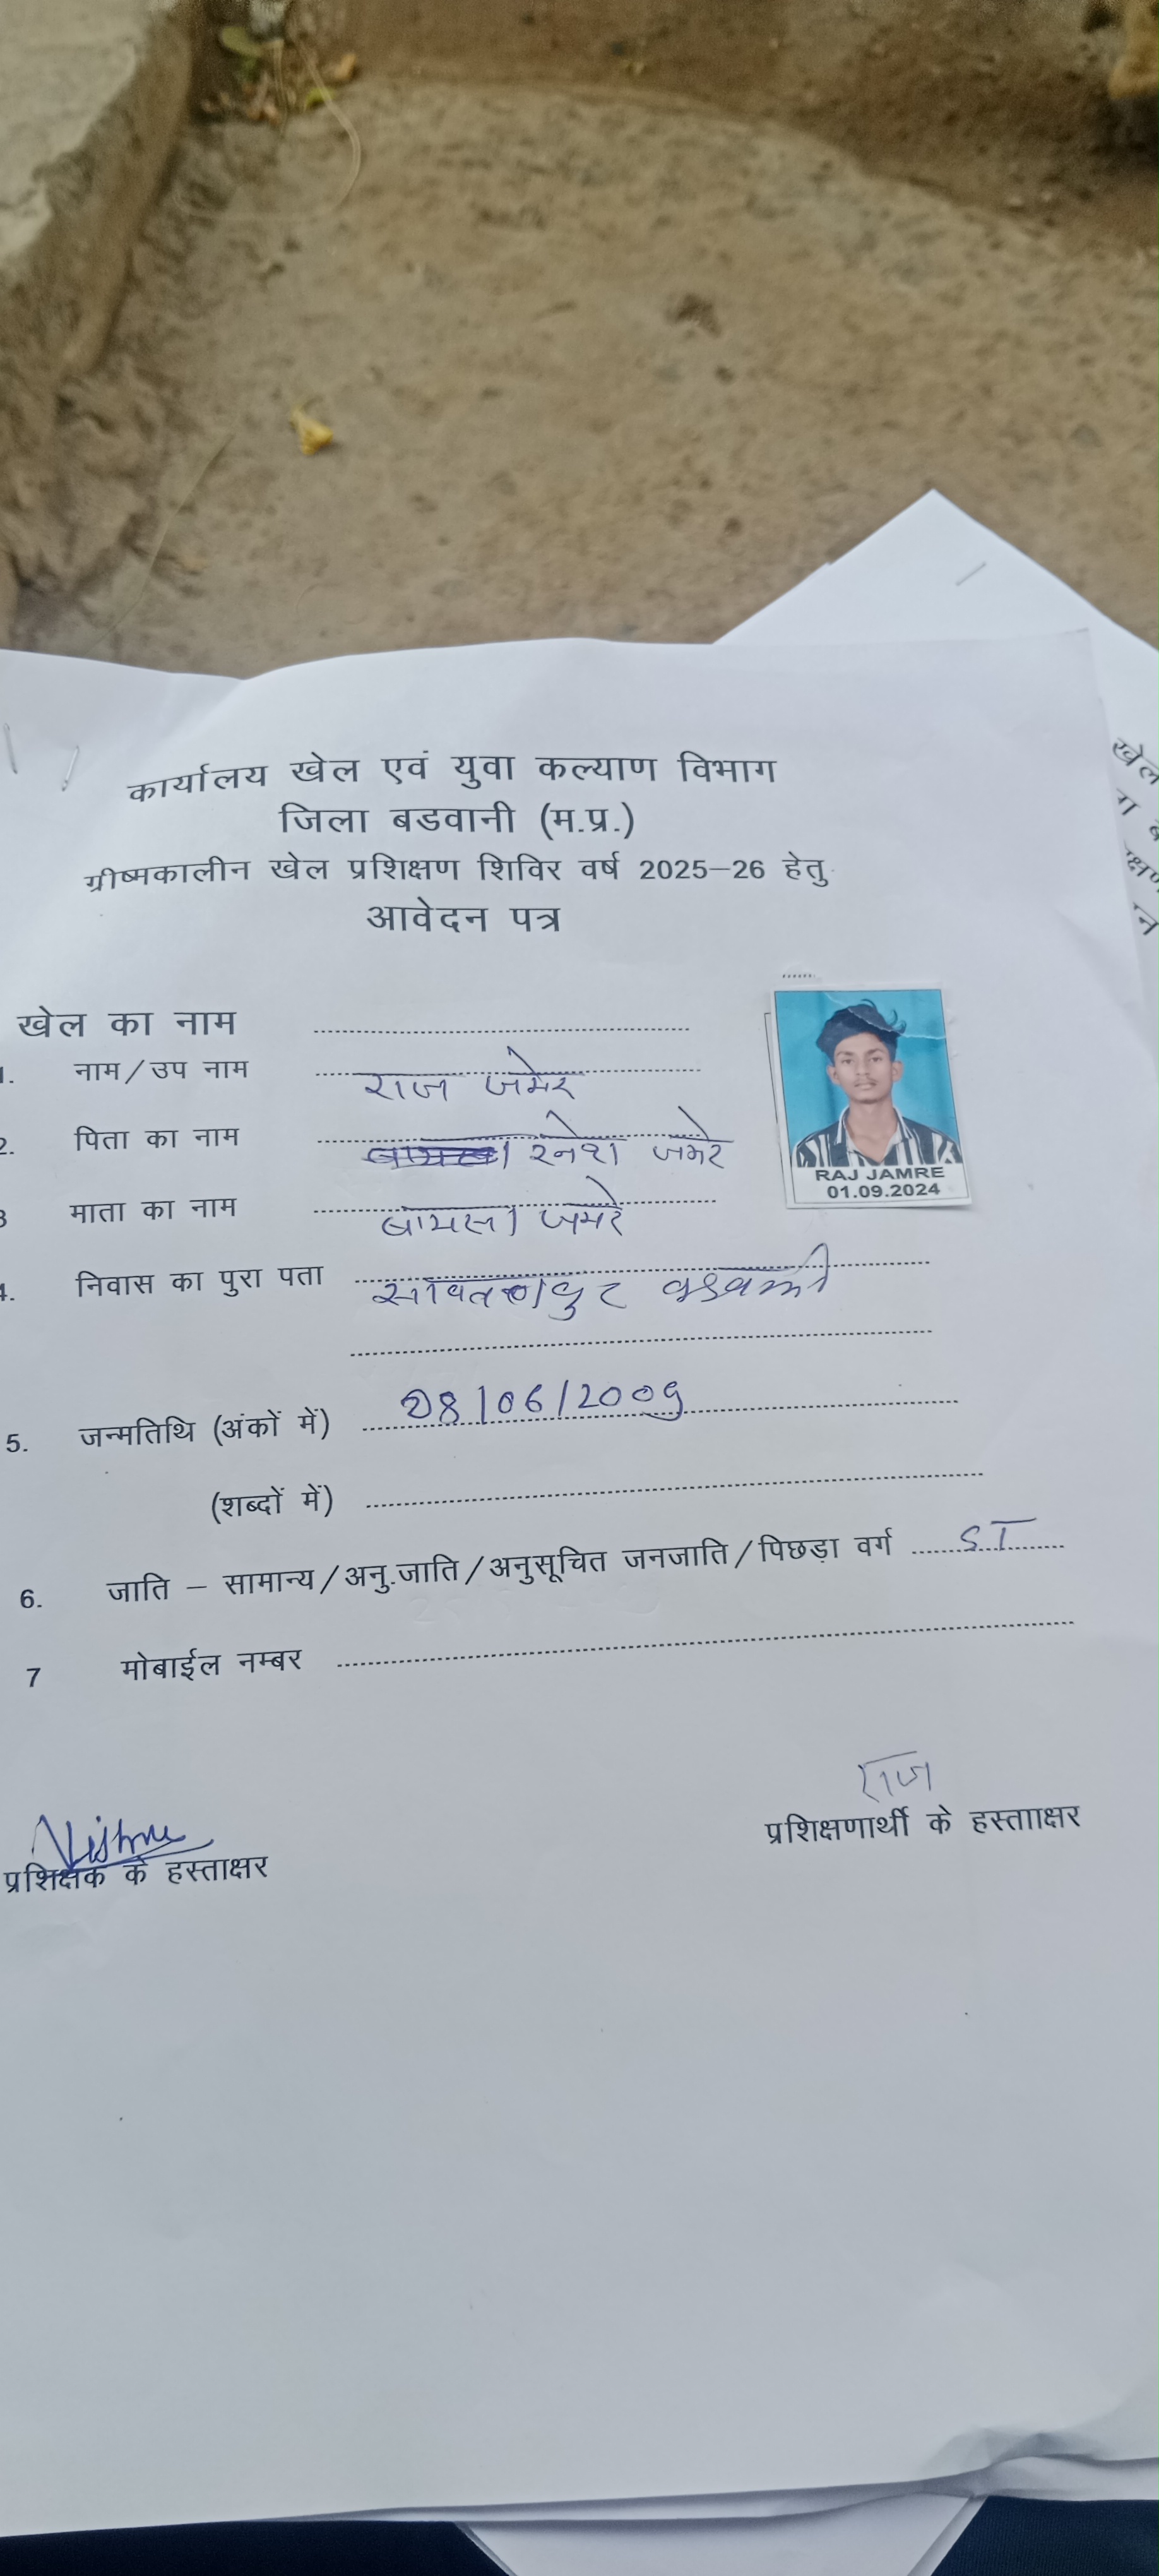 कार्यालय खेल एवं युवा कल्याण विभाग
जिला बडवानी (म.प्र.)
ग्रीष्मकालीन खेल प्रशिक्षण शिविर वर्ष 2025–26 हेतु
आवेदन पत्र
खेल का नाम
1. नाम/उप नाम राज जमेर
2. पिता का नाम जमरे
3 माता का नाम जमरे
4. निवास का पुरा पता
5. जन्मतिथि (अंकों में) 28/06/2009
(शब्दों में)
6. जाति – सामान्य/अनु.जाति/अनुसूचित जनजाति/पिछड़ा वर्ग ST
7 मोबाईल नम्बर
RAJ JAMRE
01.09.2024
राज
प्रशिक्षणार्थी के हस्तााक्षर
Vishnu
प्रशिक्षक के हस्ताक्षर
खेल